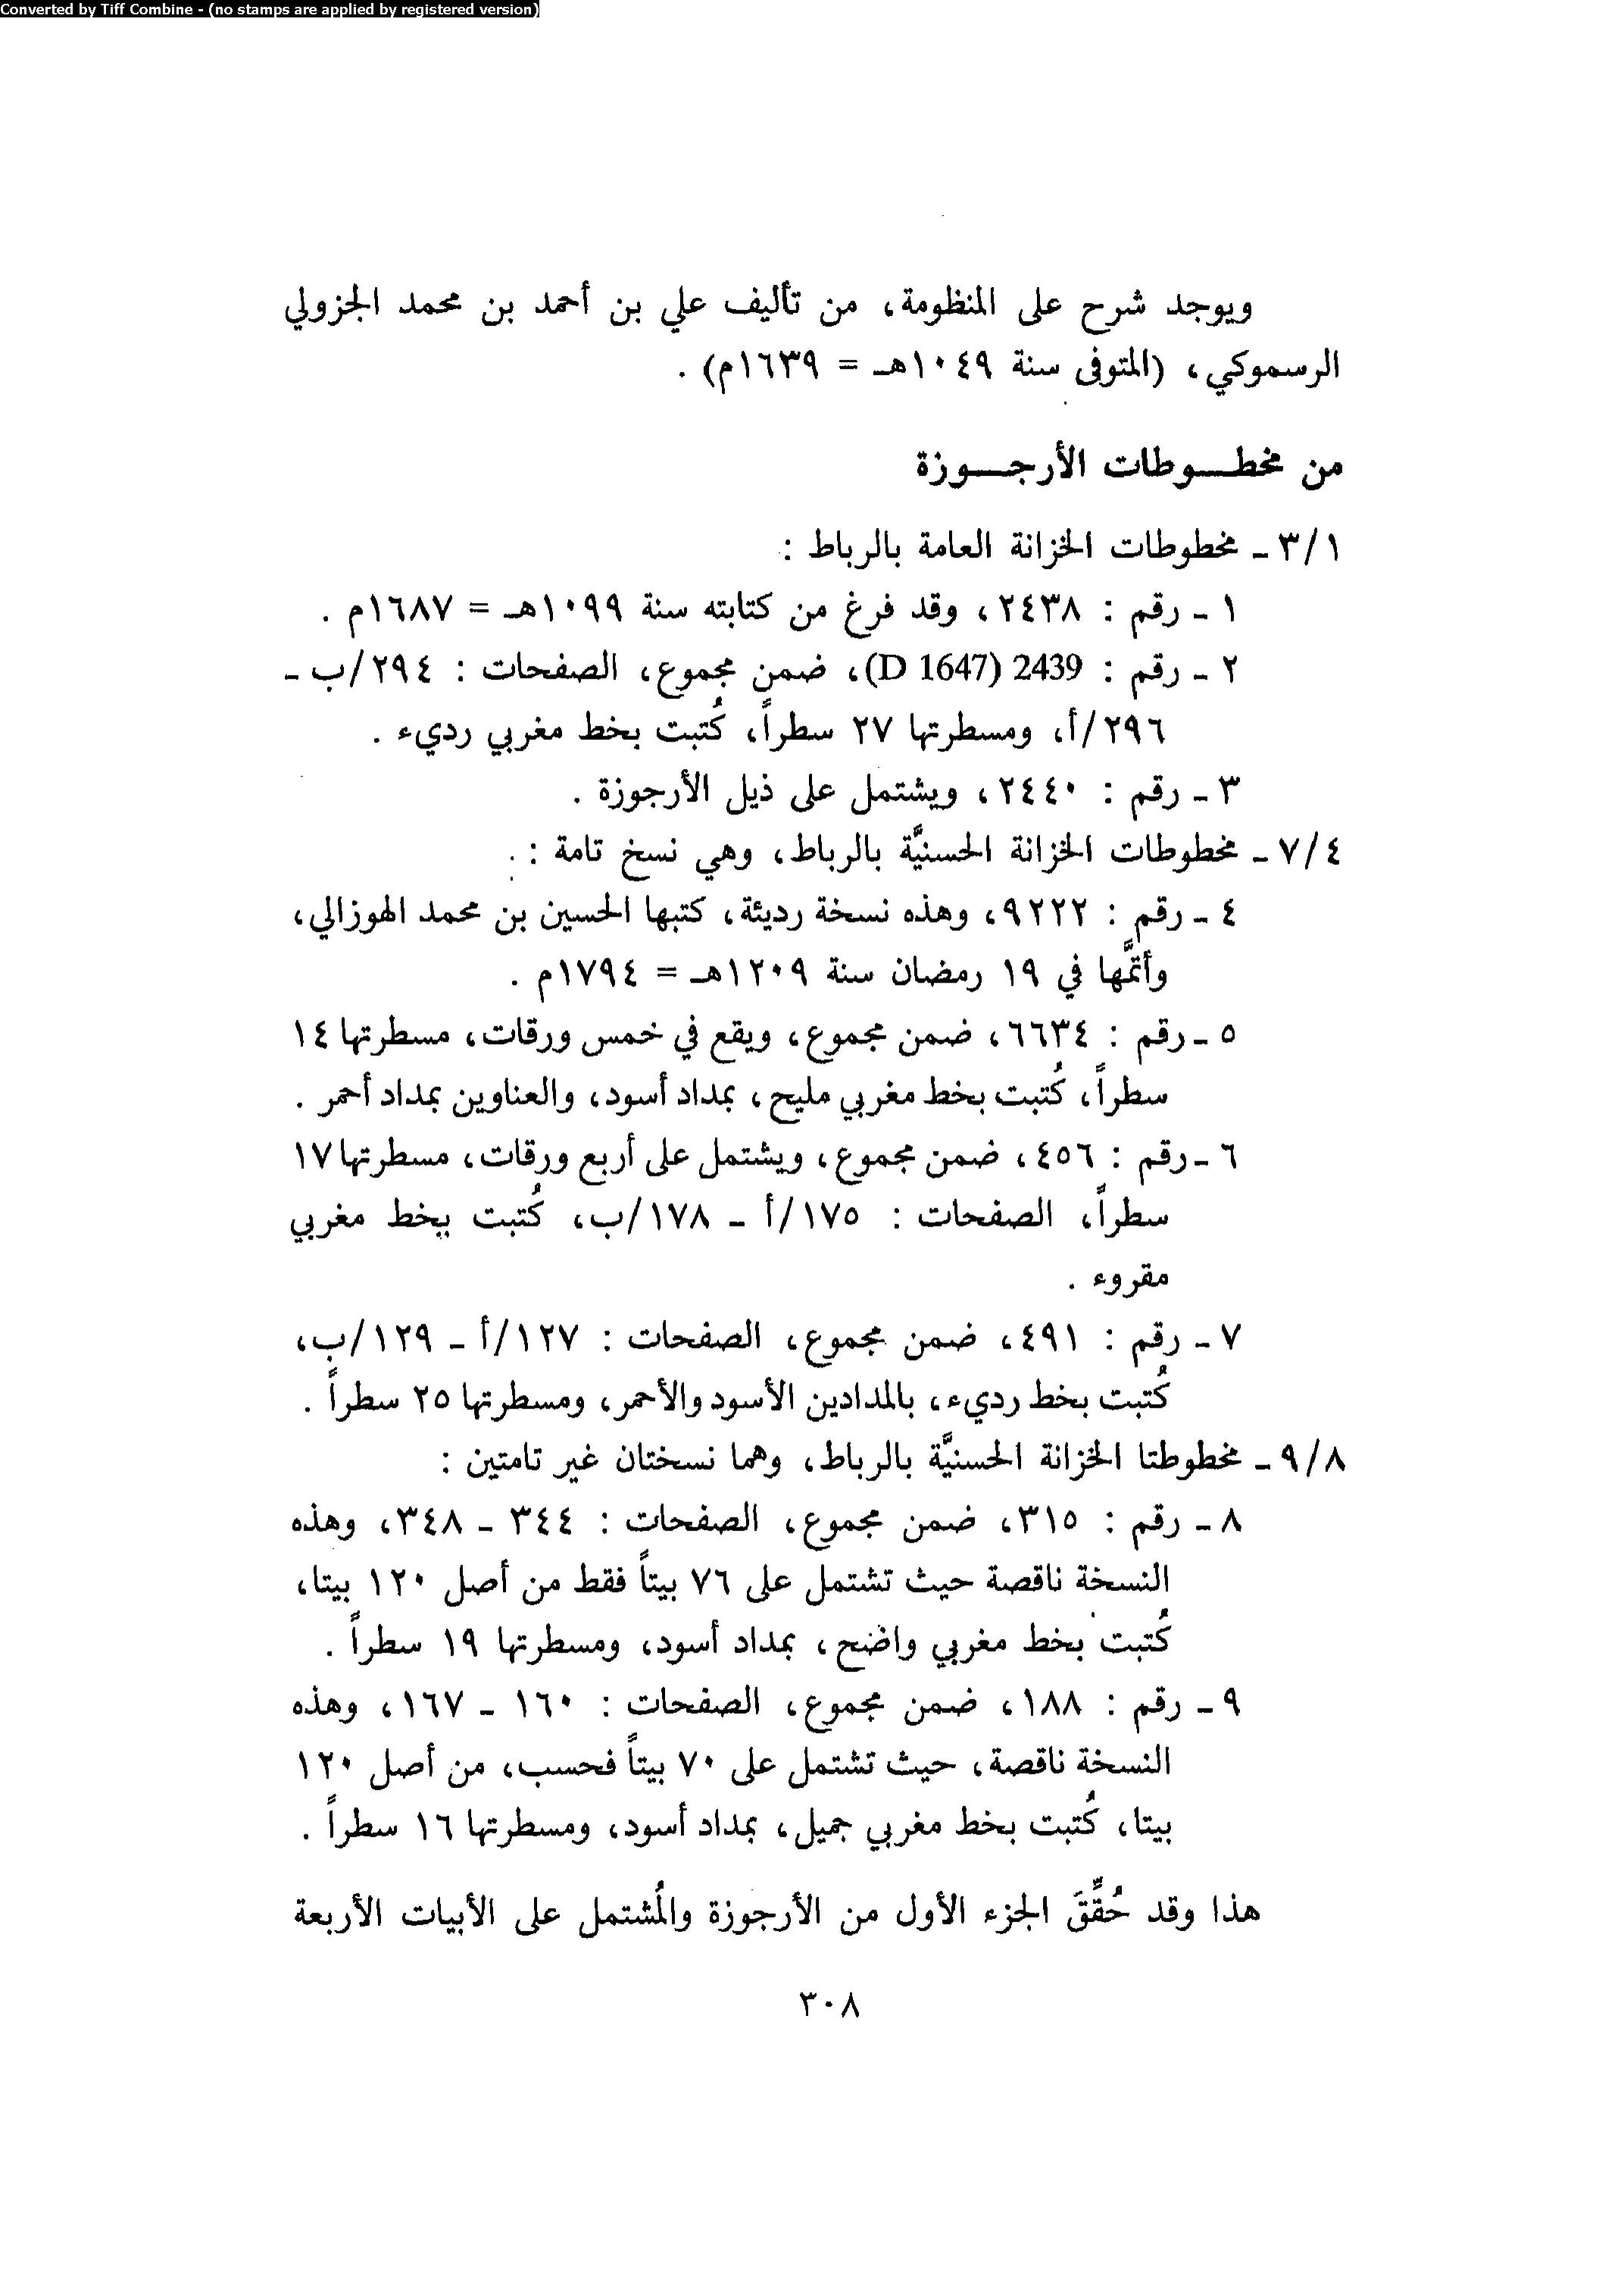 Converted by Tiff Combine - (no stamps are applied by registered version)
ويوجد شرح على المنظومة، من تأليف علي بن أحمد بن محمد الجزولي
الرسموكي، (المتوفى سنة ١٠٤٩هـ = ١٦٣٩م) .
من مخطـوطات الأرجـوزة
٣/١ ـ مخطوطات الخزانة العامة بالرباط :
١ ـ رقم : ٢٤٣٨، وقد فرغ من كتابته سنة ١٠٩٩هـ = ١٦٨٧م .
٢ ـ رقم : 2439 (D 1647)، ضمن مجموع، الصفحات : ٢٩٤/ب ـ
٢٩٦/أ، ومسطرتها ٢٧ سطراً، كُتبت بخط مغربي رديء .
٣ ـ رقم : ٢٤٤٠، ويشتمل على ذيل الأرجوزة .
٧/٤ ـ مخطوطات الخزانة الحسنيَّة بالرباط، وهي نسخ تامة :
٤ ـ رقم : ٩٢٢٢، وهذه نسخة رديئة، كتبها الحسين بن محمد الهوزالي،
وأتمَّها في ١٩ رمضان سنة ١٢٠٩هـ = ١٧٩٤م .
٥ ـ رقم : ٦٦٣٤، ضمن مجموع، ويقع في خمس ورقات، مسطرتها ١٤
سطراً، كُتبت بخط مغربي مليح، بمداد أسود، والعناوين بمداد أحمر .
٦ ـ رقم : ٤٥٦، ضمن مجموع، ويشتمل على أربع ورقات، مسطرتها ١٧
سطراً، الصفحات : ١٧٥/أ ـ ١٧٨/ب، كُتبت بخط مغربي
مقروء .
٧ ـ رقم : ٤٩١، ضمن مجموع، الصفحات : ١٢٧/أ ـ ١٢٩/ب،
كُتبت بخط رديء، بالمدادين الأسود والأحمر، ومسطرتها ٢٥ سطراً .
٩/٨ ـ مخطوطتا الخزانة الحسنيَّة بالرباط، وهما نسختان غير تامتين :
٨ ـ رقم : ٣١٥، ضمن مجموع، الصفحات : ٣٤٤ ـ ٣٤٨، وهذه
النسخة ناقصة حيث تشتمل على ٧٦ بيتاً فقط من أصل ١٢٠ بيتا،
كُتبت بخط مغربي واضح، بمداد أسود، ومسطرتها ١٩ سطراً .
٩ ـ رقم : ١٨٨، ضمن مجموع، الصفحات : ١٦٠ ـ ١٦٧، وهذه
النسخة ناقصة، حيث تشتمل على ٧٠ بيتاً فحسب، من أصل ١٢٠
بيتا، كُتبت بخط مغربي جميل، بمداد أسود، ومسطرتها ١٦ سطراً .
هذا وقد حُقِّقَ الجزء الأول من الأرجوزة والمُشتمل على الأبيات الأربعة
٣٠٨